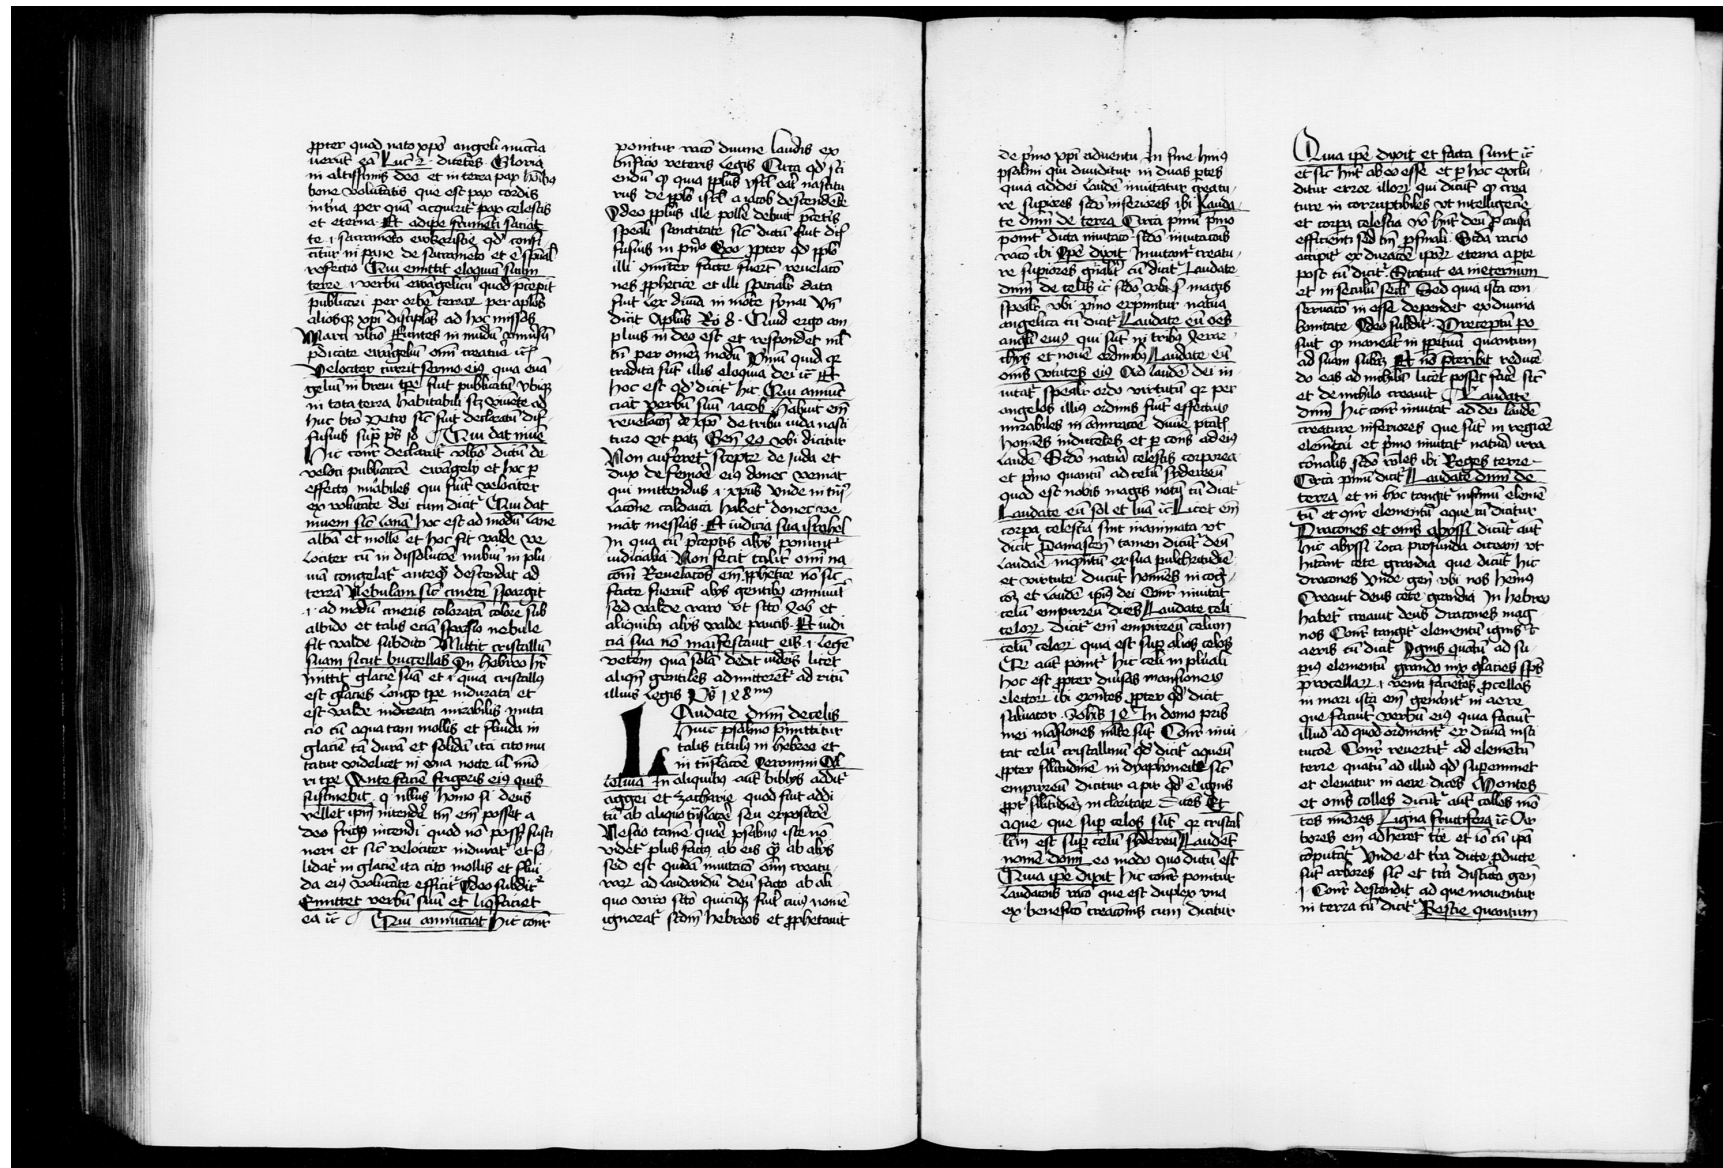 ꝓpter quod nato xpo angeli nuncia
uerūt eā luc 2 dicētes Gloria
in altissimis deo et in terra pax hoībꝯ
bone voluntatis que est pax cordis
interna per quā acquirit᷑ pax celestis
et eterna Et adipe frumēti saciat
te .i. sacramēto eukaristie qd᷑ confi
citur in pane de sacramēto et ē spūal
refectio Qui emittit eloquiū suum
terre .i. verbū ewāgelicū quod p̄cepit
publicari per orbē terrarꝫ per aplōs
aliosqꝫ xpi disciplōs ad hoc missos
Marci vltīo Euntes in mūdū vniūsū
p̄dicate ewāgeliū omī creature
Velociter currit sermo eiꝯ quia euā
geliū in breui tp̄e fuit publicatū vbiqꝫ
in tota terra habitabili viuēte ad
huc bto Petro sic fuit declaratū dif
fusius sup̄ ps Qui dat niuē
Hic cont᷑ declarat vltīo dictū de
veloci publicatōe ewāgelij et hoc p
effectꝯ mirabiles qui fiūt velociter
ex volūtate dei cum dicit᷑ Qui dat
niuem sic lanā hoc est ad modū lane
alba et molle et hoc fit valde ve
lociter cū in dissolutōe nubiū in plu
uiā congelat᷑ anteqꝫ descendat ad
terrā Nebulam sic cinerē spargit
.i. ad modū cineris coloratā colore sub
albido et talis eciā sparsio nebule
fit valde subito Mittit cristallū
suam sicut buccellas In hebreo hr̄
mittit glaciē suā et .i. quia cristallꝯ
est glacies longo tp̄e indurata et
est valde indurata mirabilis muta
cio cū aqua tam mollis et fluida in
glaciē tā durā et solidā ita cito mu
tatur videlicet in vna nocte ul mi
ri tp̄e Ante faciē frigoris eiꝯ quis
sustinebit q nullus homo si deus
vellet ipm intendē tm̄ em posset a
deo frigꝯ intendi quod nō possꝫ susti
neri et sic velociter indurat᷑ et so
lidat᷑ in glaciē ita cito mollis et flui
da eiꝯ volūtate efficit᷑ Ideo subdit᷑
Emittet verbū suū et liqfaciet
ea Qui annūciat Hic cont᷑
ponitur racō diuine laudis ex
bnficio veteris legis Circa qd᷑ sci
endū q quia ꝓplus isrl erat nascitu
rus de ꝓplo isrl a iacob descendēte
Ideo ꝓplus ille polle debuit p̄ceris
spēali sanctitate sic dictū fuit dif
fusius in p̄nᵒ Exo ꝓpter qd᷑ ꝓplo
illi cōmūiter facte fuerūt reuelacō
nes ꝓphetice et illi specialis data
fuit lex diuina in mōte synai Vn̄
dicit aplus Ro 3 Quid ergo am
plius iudeo est et respondet ml
tū per omēꝫ modū Primū quid qꝛ
credita sūt illis eloquia dei Et
hoc est qd᷑ dicit᷑ hic Qui annūt
ciat verbū suū iacob Habuit em
reuelacōeꝫ de xpo de tribu iuda nasci
turo vt patꝫ Gen 49 vbi dicitur
Non auferet᷑ sceptrꝫ de Juda et
dux de femore eiꝯ donec veniat
qui mittendus ē xpus vnde in trās
lacōne caldaica habet᷑ donec ve
niat messias Et iudicia sua israhel
In qua cū p̄ceptis alijs ponunt᷑
iudicialia Non fecit talit᷑ omi na
cōni Reuelacōes em ꝓphetice nō sic
facte fuerūt alijs gentibꝯ cōmuīt᷑
sed valde raro vt scō Job et
aliquibꝯ alijs valde paucis Et iudi
cia sua nō maīfestauit eis .i. legē
veterem quā solā dedit iudeis licet
aliqn gentiles admitteret᷑ ad ritū
illius legis Ps 148mꝯ
Laudate dnm de celis
Huic psalmo p̄mittitur
talis titulꝯ in hebreo et
in trāslacōe Jeronimi All
leluia In aliquibꝯ aūt biblijs addit᷑
aggei et zacharie quod fuit addi
tū ab aliquo trāslatōe seu expositōe
Nescio tamē quare psalmꝯ iste nō
videt᷑ plus factꝯ ab eis qꝫ ab alijs
sed est quedā inuitacō oīm creatu
rarꝫ ad laudandū deū facta ab ali
quo viro scō quicūqꝫ fuit cuiꝯ nomē
ignorat᷑ scdm hebreos et ꝓphetauit
de p̄mo xpi aduentu In fine huiꝯ
psalmi qui diuiditur in duas ptes
quia ad dei laudē inuitātur creatu
re supiores scdo inferiores ibi Lauda
te dnm de terra Circa p̄mū p̄mo
ponit᷑ dicta inuitacō scdo inuitacōis
racō ibi Ipse dixit Inuitant᷑ creatu
re supiores gn̄alit᷑ cū dicit᷑ Laudate
dnm de celis scdo vbi magis
spealit᷑ vbi p̄mo exp̄mitur natura
angelica cū dicit᷑ Laudate eū oēs
angli eiꝯ qui sūt in tribꝯ Jerar
chijs et nouē ordinibꝯ Laudate eū
omīs virtutes eiꝯ Ad laudē dei in
uitat᷑ spealit᷑ ordo virtutū qꝛ per
angelos illiꝯ ordinis fiūt effectus
mirabiles in amiracōe diuie ptatis
homies inducētes et p cons ad eiꝯ
laudē Scdo natura celestis corporea
et p̄mo quantū ad celū sydereū
quod est nobis magis notū cū dicit᷑
Laudate eū sol et luna Licet em
corpa celestia sint inanimata vt
dicit Damascen tamen dicūt᷑ deū
laudare inquātū ex sua pulchritudīe
et virtute ducūt homīes in cog
cōeꝫ et laudē ipiꝯ dei Cont᷑ inuitat
celū empireū dicēs Laudate celi
celorꝫ dicit᷑ em empireū celum
celū celorꝫ quia est sup alios celos
Et aūt ponit᷑ hic celi in plurali
hoc est ꝓpter diuīsas mansiones
electorꝫ ibi exīntes ꝓpter qd᷑ dicit
saluator Johis 14 In domo pris
mei māsiones multe sūt Cont᷑ inui
tat celū cristallinū qd᷑ dicit᷑ aqueū
ꝓpter silitudinē in dyaphoneitate sic
empireū dicitur a pir qd᷑ ē ignis
ꝓpt᷑ silitudinē in claritate dicēs Et
aque que sup celos sūt qꝛ cristal
linū est sup celū sydereū Laudēt
nomē dnni eo modo quo dictū est
Quia ipe dixit Hic cont᷑ ponitur
laudacōis racō que est duplex vna
ex beneficō creacōnis cum dicitur
Quia ipe dixit et facta sunt
et sic hnt ab eo esse et p hoc exclu
ditur error illorꝫ qui dicūt q crea
ture incorruptibiles vt intelligēcie
et corpa celestia nō hnt deū ꝓ causa
efficienti sed tm̄ ꝓ finali Scda racio
accipit᷑ ex duracōe ipsorꝫ eterna a pte
post cū dicit᷑ Statuit ea in eternum
et in seculū seclī Sed quia ista con
seruacō in esse dependet ex diuina
bonitate Ideo subdit᷑ Preceptū po
suit q maneāt in ppetuū quantum
ad suam substāꝫ Et nō pteribit reducē
do eas ad nichilū licet posset facē sic
et de nichilo creauit Laudate
dnm Hic cont᷑ inuitat ad dei laudē
creaturas inferiores que sūt in regiōe
elemētari et p̄mo inuitat naturā irra
cōnalis scdo rōnales ibi Reges terre
Circa p̄mū dicit᷑ Laudate dnm de
terra et in hoc tangit᷑ infimū elemē
tū et cont᷑ elementū aque cū dicitur
Dracones et omīs abyssi dicūt᷑ aūt
hic abyssi loca profunda occeani vt
hitant cete grandia que dicūt᷑ hic
dracones vnde gen vbi nos hemꝯ
Creauit deus cete grandia In hebreo
habet᷑ creauit deus dracones mag
nos Cont᷑ tangit᷑ elementū ignis et
aeris cū dicit᷑ Ignis quātū ad su
piꝯ elementū grando nix glacies sps
procellarꝫ .i. venti faciētes ꝓcellas
in mari ista em gen̄ant᷑ in aere
que faciūt verbū eiꝯ quia faciūt
illud ad quod ordinant᷑ ex diuina insti
tucōe Cont᷑ reuertit᷑ ad elemētū
terre quātū ad illud qd᷑ supeminet
et eleuatur in aere dicēs Montes
et omīs colles dicūt᷑ aūt colles mō
tes mīores Ligna fructifera Ar
bores em adherēt tre et iō cū ipa
cōputāt᷑ Vnde et tra dicit᷑ ꝓducere
fuit arbores sic et tra dictata gen
1 Cont᷑ descendit ad que mouentur
in terra cū dicit᷑ Bestie quantum